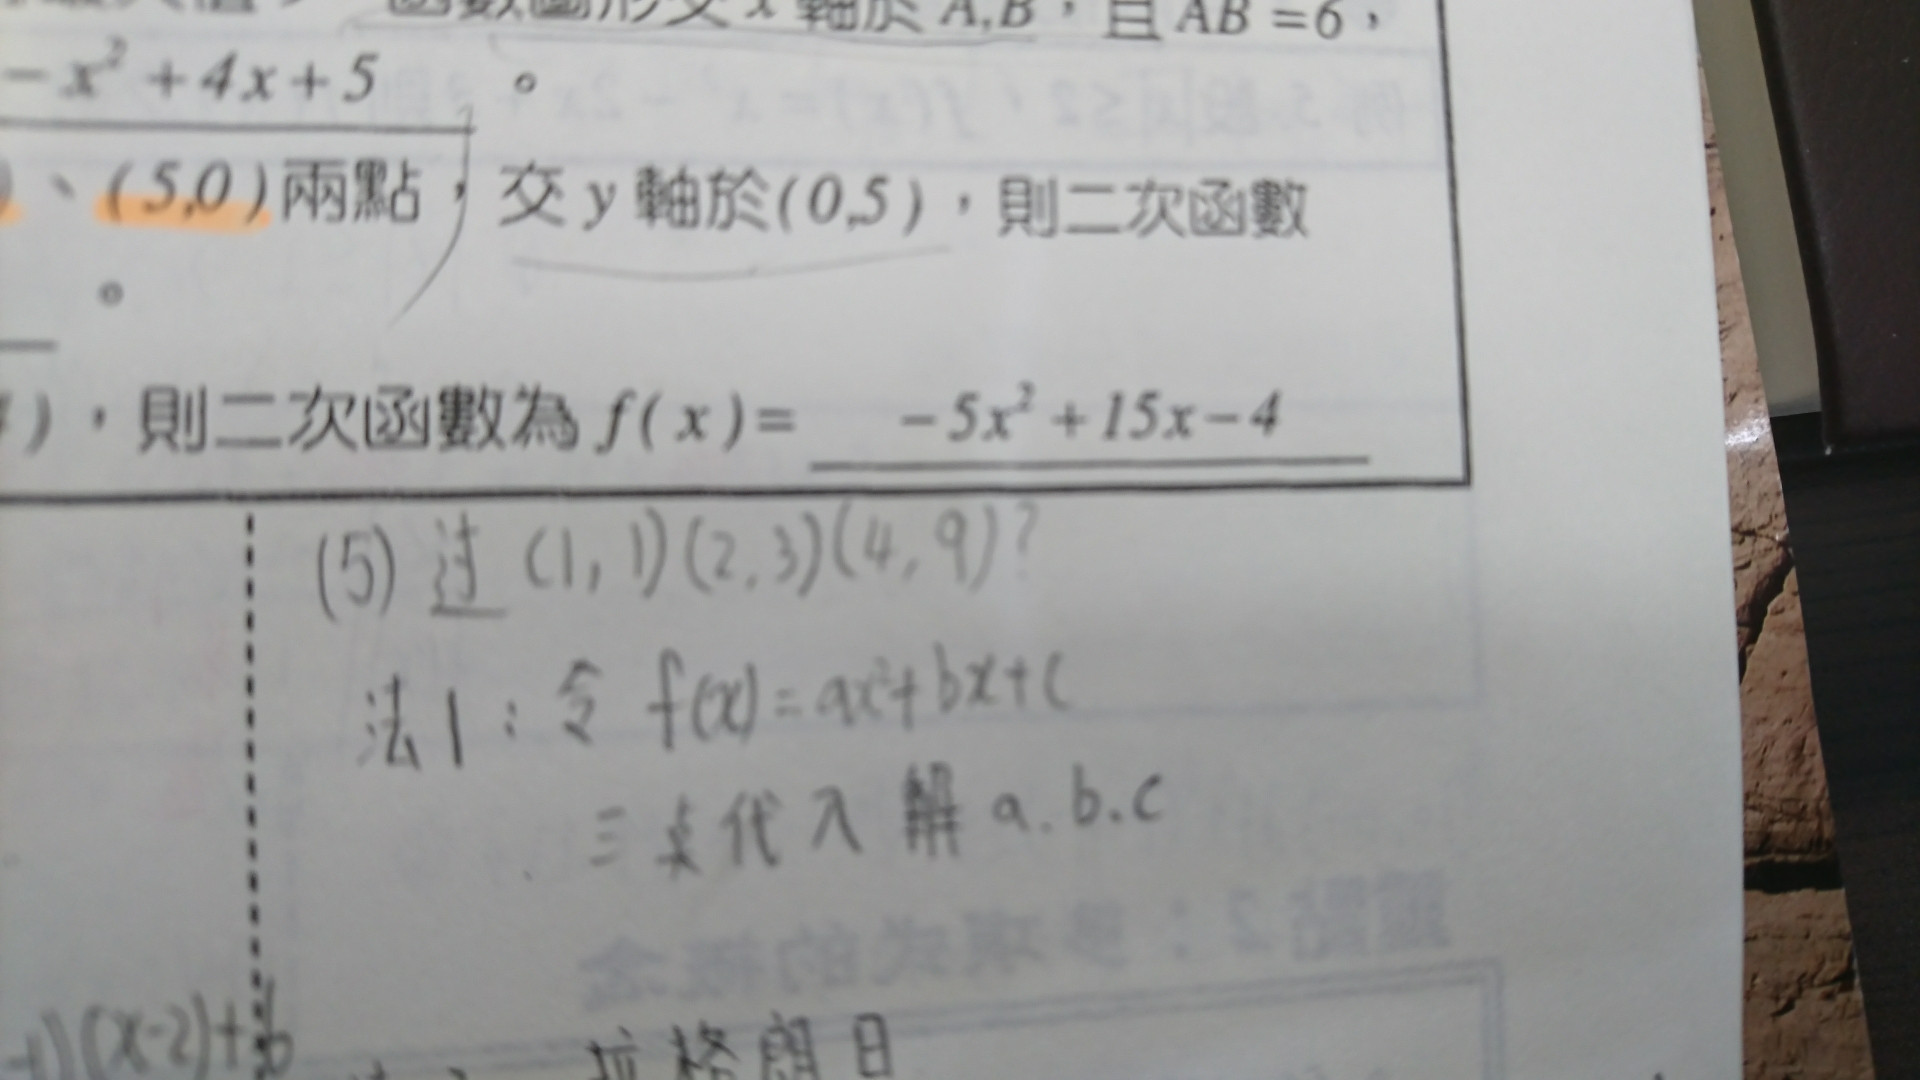 函數圖形交 x 軸於 A,B，且 AB =6，
－x² +4x+5 。
、(5,0)兩點，交 y 軸於(0,5)，則二次函數
。
)，則二次函數為 f( x )= －5x² +15x－4
(5) 过 (1,1)(2,3)(4,9)?
法1：令 f(x)=ax²+bx+c
三点代入解 a.b.c
(x-2)+b
拉格朗日